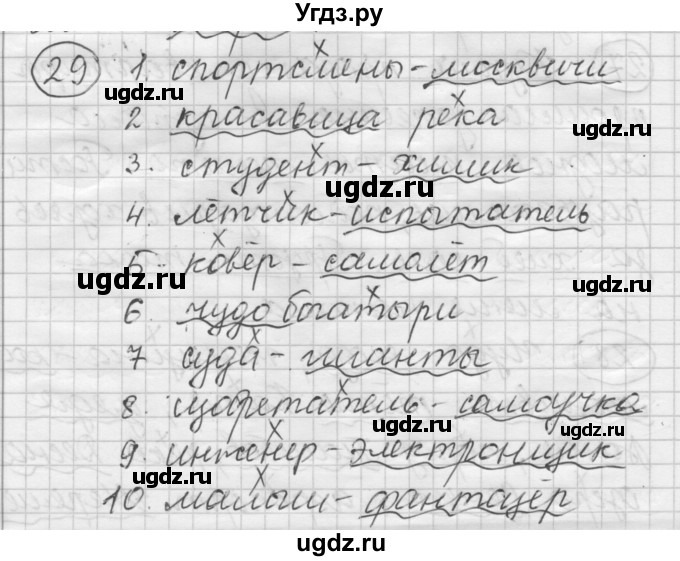 Угдз.ру
29 1 спортсмены - москвичи
ugdz.ru ugdz.ru
2 красавица река
ugdz.ru
3. студент - химик
ugdz.ru
4. лётчик - испытатель
5. ковёр - самолёт
ugdz.ru
6. чудо богатыри
ugdz.ru
7 суда - гиганты
ugdz.ru
8. изобретатель - самоучка
9. инженер - электронщик
ugdz.ru ugdz.ru
10. малыш - фантазёр
ugdz.ru
ugdz.ru